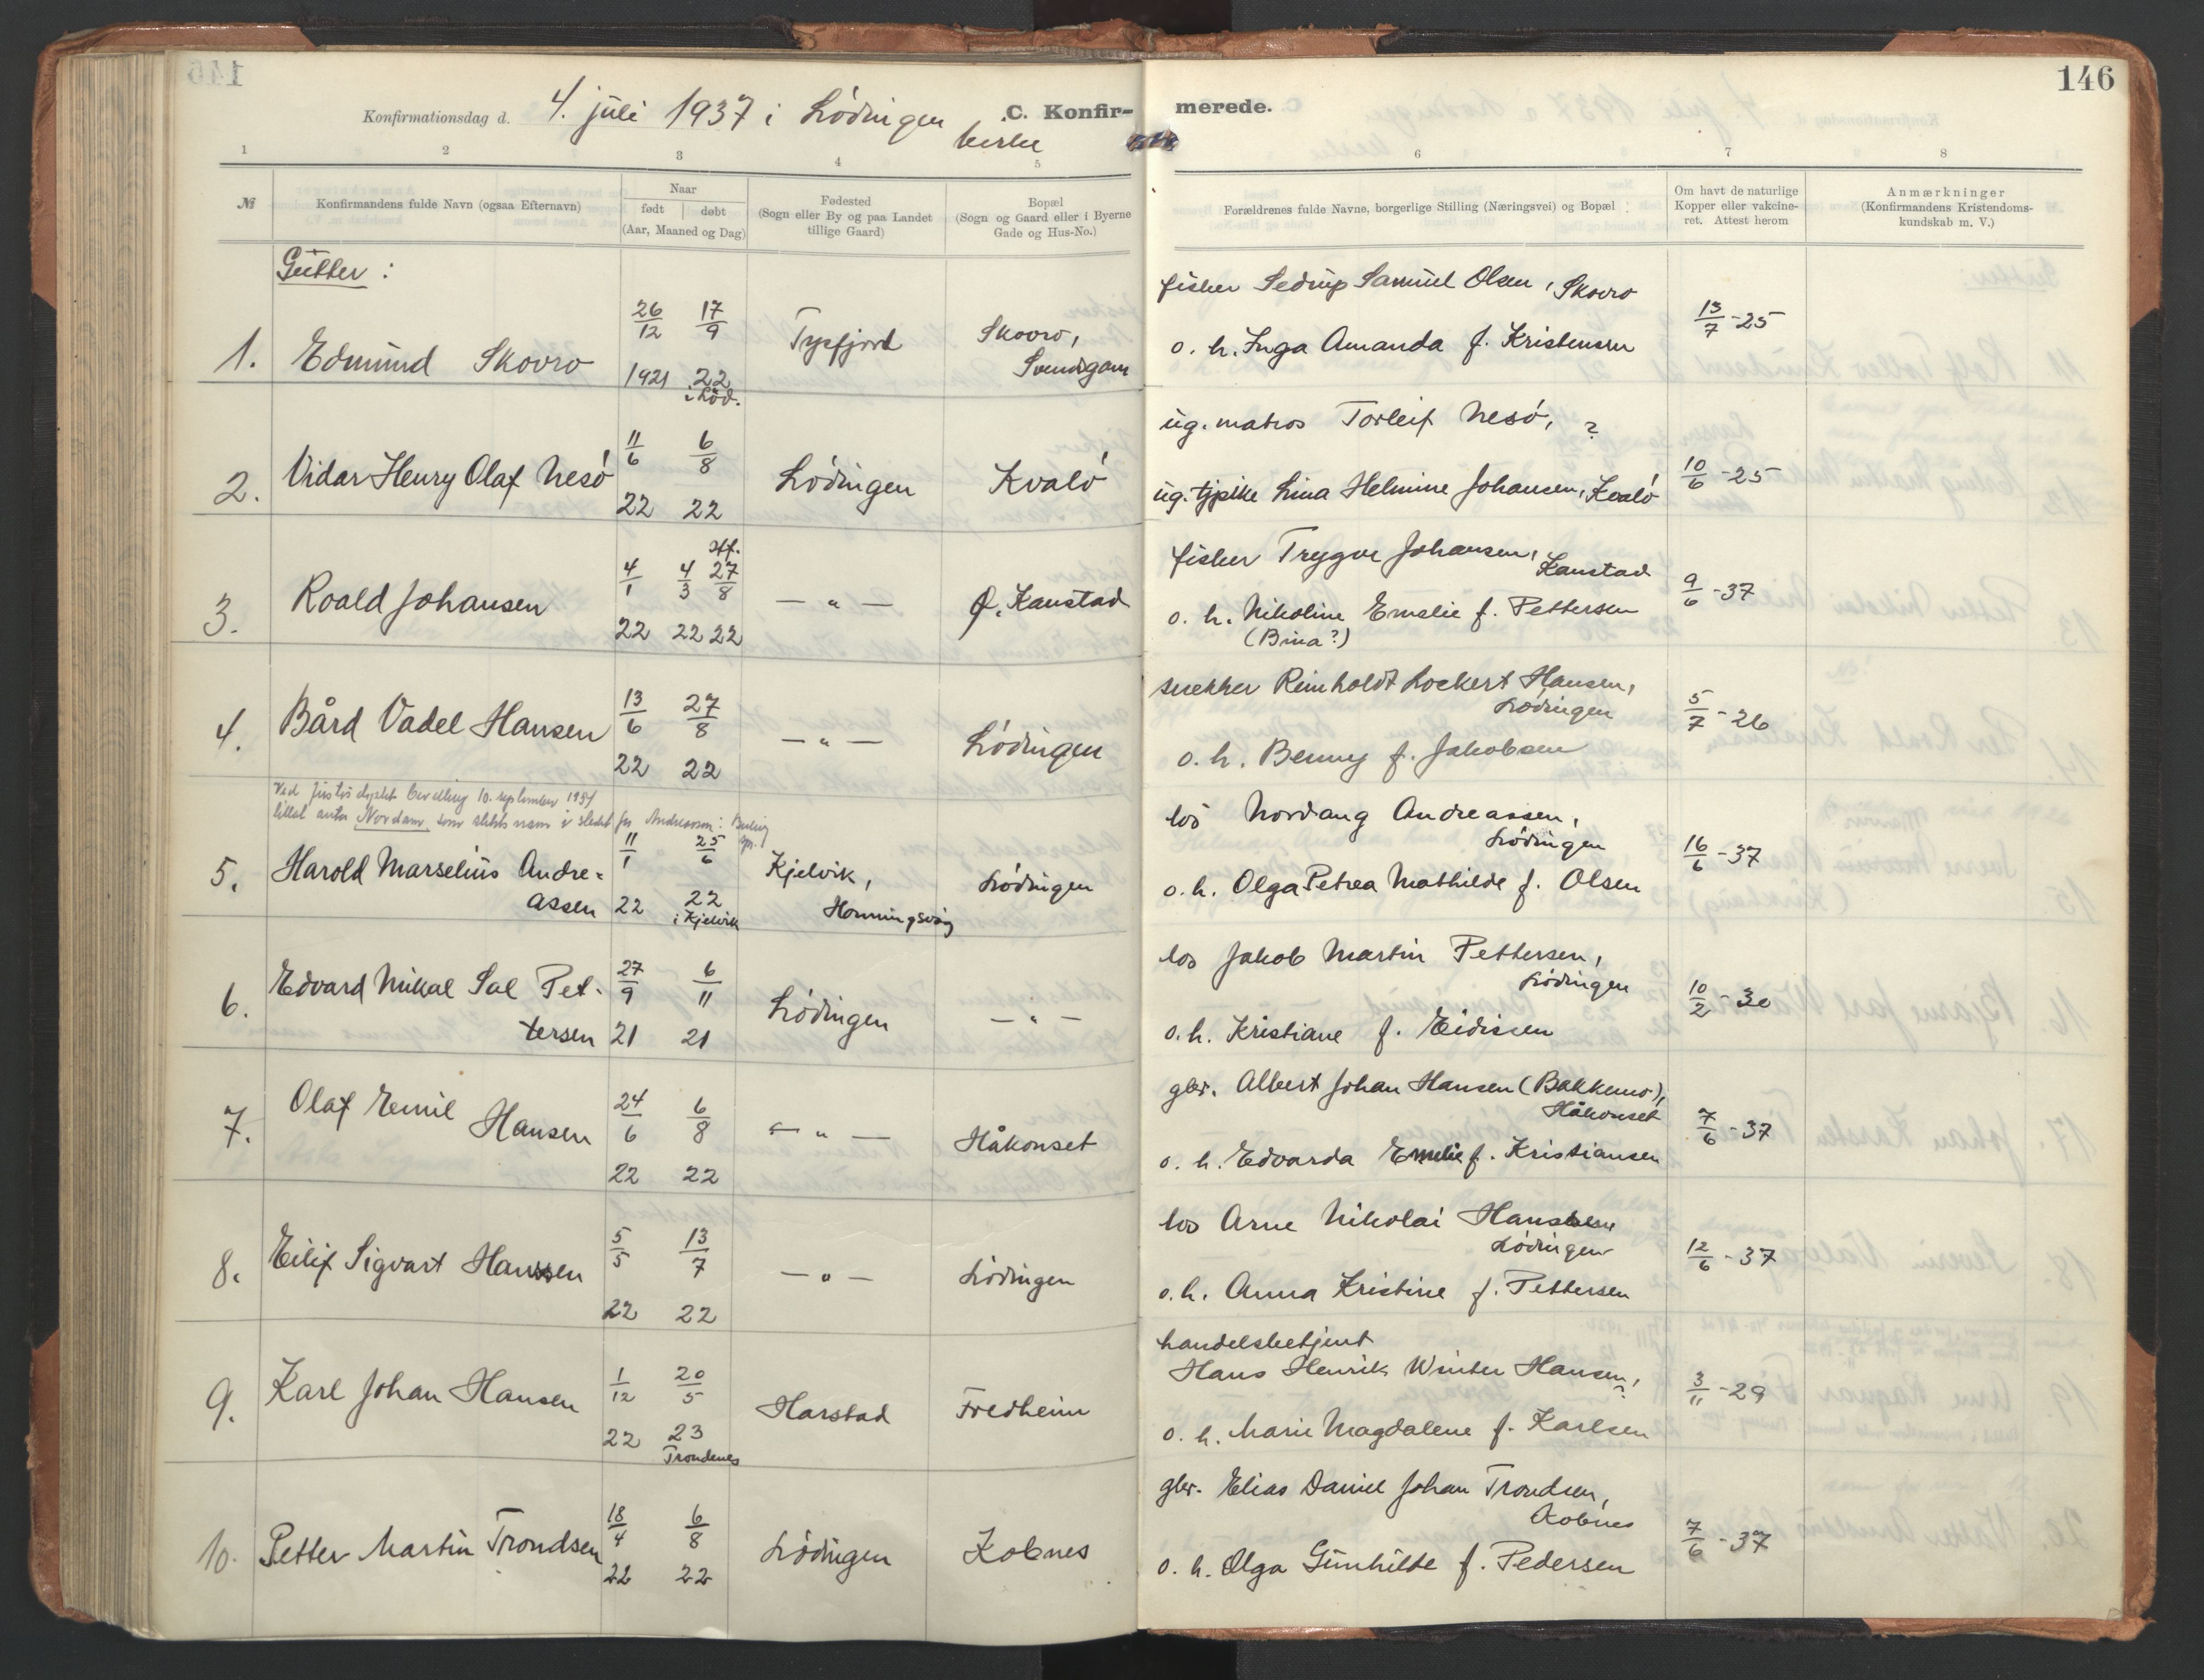 146
Konfirmationsdag d. 4. juli 1937 i Lödingen kirke
C. Konfirmerede.
1 2 3 4 5 6 7 8
№
Konfirmandens fulde Navn (ogsaa Efternavn)
Naar
født | døbt
(Aar, Maaned og Dag)
Fødested
(Sogn eller By og paa Landet
tillige Gaard)
Bopæl
(Sogn og Gaard eller i Byerne
Gade og Hus-No.)
Forældrenes fulde Navne, borgerlige Stilling (Næringsvei) og Bopæl
Om havt de naturlige
Kopper eller vakcine-
ret. Attest herom
Anmærkninger
(Konfirmandens Kristendoms-
kundskab m. V.)
Gutter:
1. Edmund Skovro
26/12 1921
17/9 22 i Löd.
Tysfjord
Skovro,
fisker Sedrup Samuel Olsen, Skovro
o. h. Inga Amanda f. Kristensen
13/7-25
2. Vidar Henry Olaf Nesö
11/6 22
6/8 22
Lödingen
Kvalö
ug. matros Torleif Nesö, ?
ug. tjpike Lina Helmine Johansen, Kvalö
10/6-25
3. Roald Johansen
4/1 22
4/3 22
stf. 27/8 22
— " —
Ø. Kanstad
fisker Trygve Johansen, Kanstad
o. h. Nikoline Emelie f. Pettersen
(Bina?)
9/6-37
4. Bård Vadel Hansen
13/6 22
27/8 22
— " —
Lödingen
snekker Reinholdt Lockert Hansen,
Lödingen
o. h. Benny f. Jakobsen
5/7-26
Ved Justisdept. bevilling 10. september 1957
tillat anta Nordam som slektsnavn i stedet for Andreassen:
5. Harold Marselius Andre=
assen
11/1 22
25/6 22 i Kjelvik
Kjelvik,
Honningsvåg
Lödingen
los Nordang Andreassen,
Lödingen
o. h. Olga Petrea Mathilde f. Olsen
16/6-37
6. Edvard Mikal Sal Pet-
tersen
27/9 21
6/11 21
Lödingen
— " —
los Jakob Martin Pettersen,
Lödingen
o. h. Kristiane f. Eidissen
10/2-30
7. Olaf Emil Hansen
24/6 22
6/8 22
— " —
Håkonset
gbr. Albert Johan Hansen (Bakkemo),
Håkonset
o. h. Edvarda Emelie f. Kristiansen
7/6-37
8. Eilif Sigvart Hanssen
5/5 22
13/7 22
— " —
Lödingen
los Arne Nikolai Hanssen
Lödingen
o. h. Anna Kristine f. Pettersen
12/6-37
9. Karl Johan Hansen
1/12 22
20/5 23
Trondenes
Harstad
Fredheim
handelsbetjent
Hans Henrik Winter Hansen, ?
o. h. Marie Magdalene f. Karlsen
3/11-29
10. Petter Martin Trondsen
18/4 22
6/8 22
Lödingen
Kobnes
gbr. Elias Daniel Johan Trondsen,
Kobnes
o. h. Olga Gunhilde f. Pedersen
7/6-37